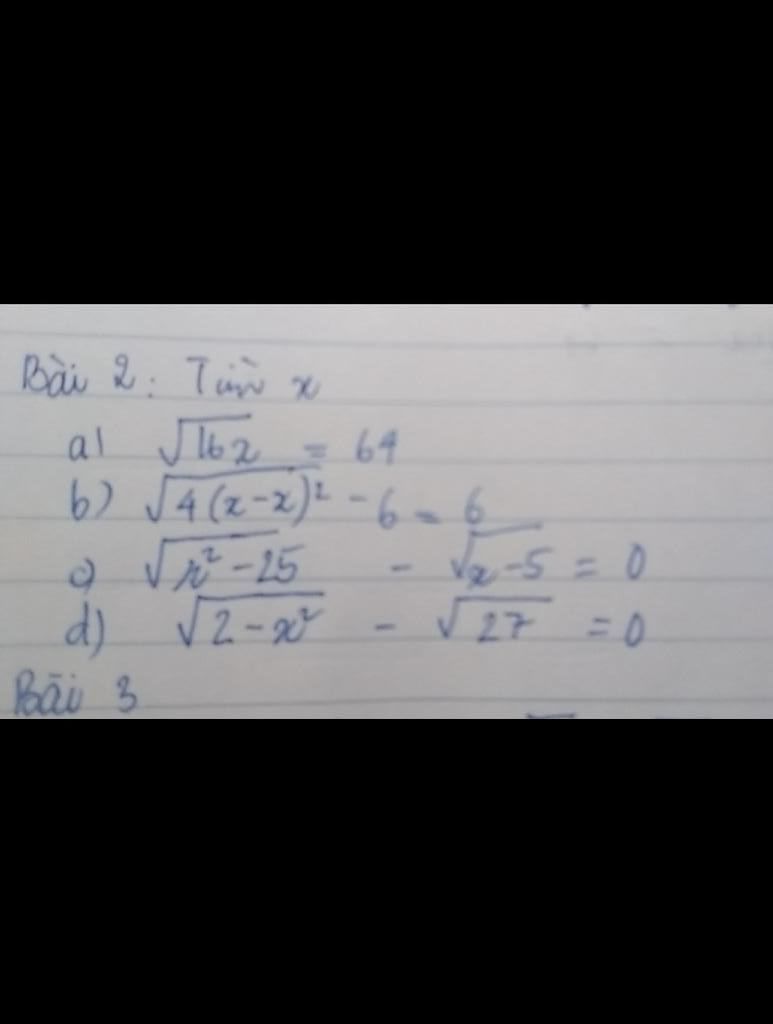 Bài 2: Tìm x
a) √16x = 64
b) √4(x-x)² - 6 = 6
c) √x²-25 - √x-5 = 0
d) √2-x² - √27 = 0
Bài 3